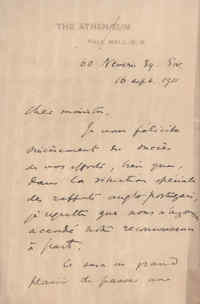 THE ATHENÆUM
PALL MALL, S.W.
60 Nevern Sq. S.W.
16 sept. 1911
Cher ministre,
Je vous félicite
sincèrement du succès
de vos efforts, bien que,
dans la situation spéciale
des rapports anglo-portugais,
je regrette que nous n'ayons
accordé notre reconnaissance
à part.
Ce sera un grand
plaisir de passer une